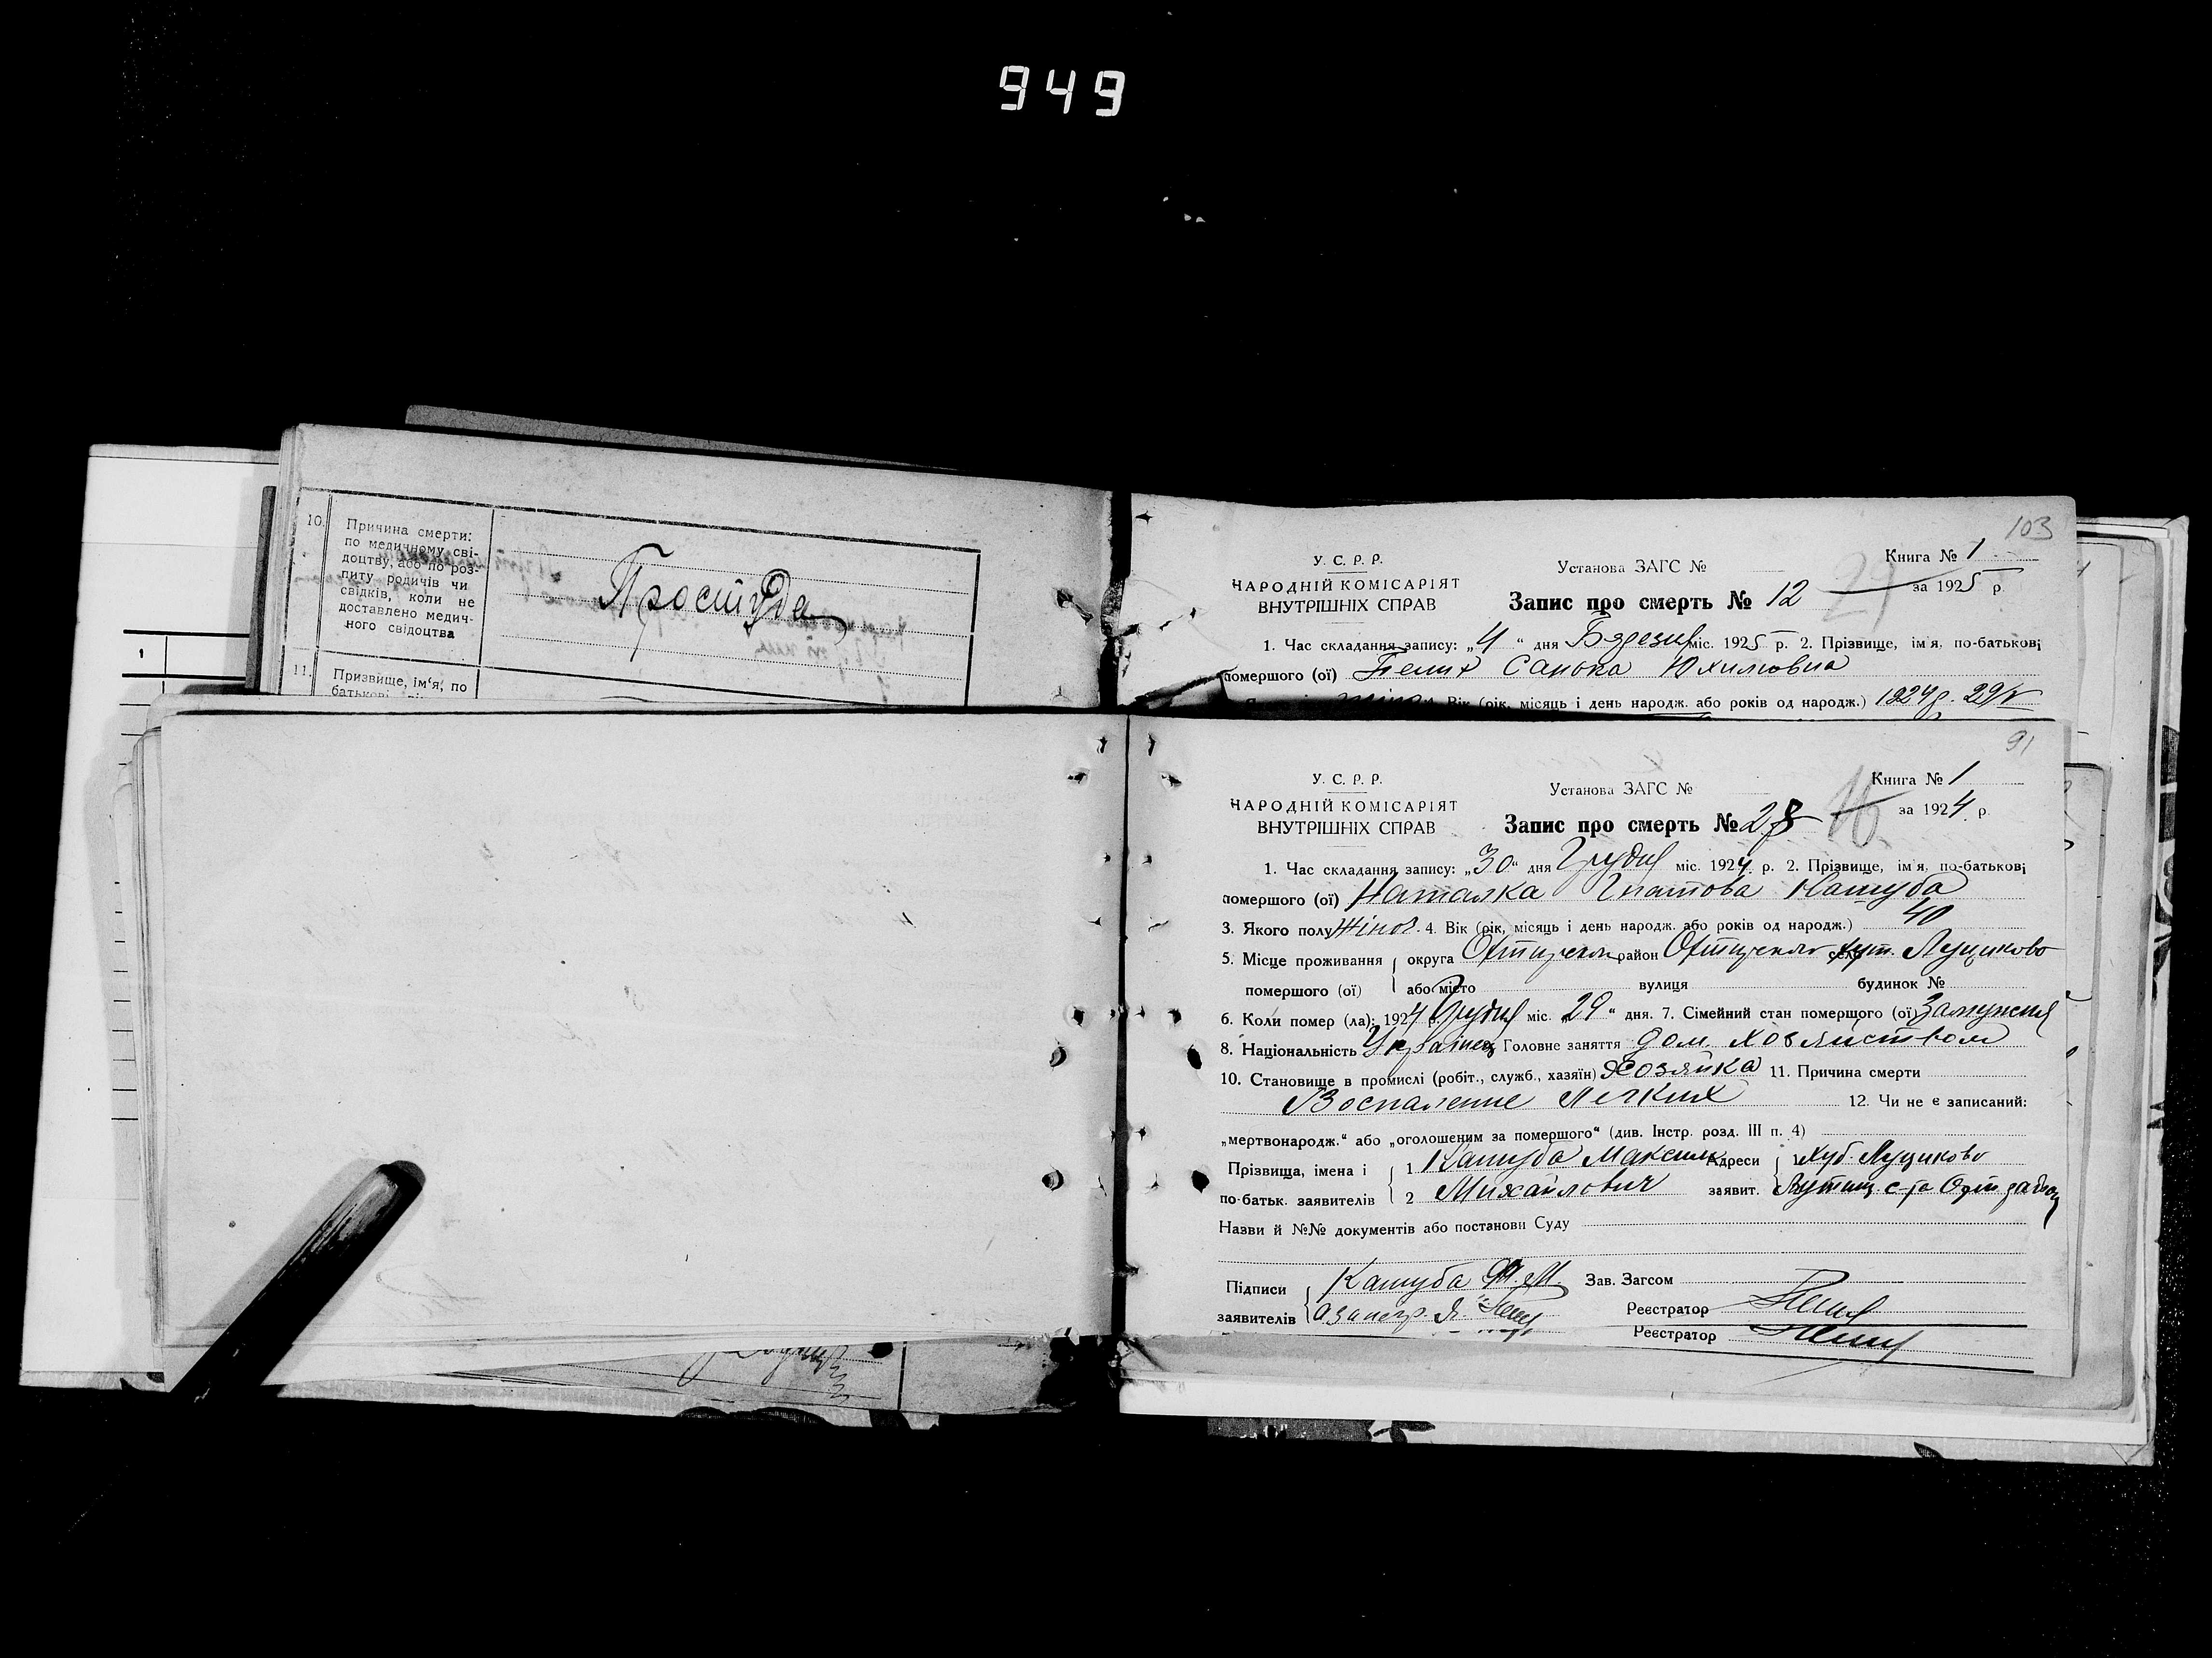 949
10.
Причина смерти:
по медичному сві-
доцтву, або по роз-
питу родичів чи
свідків, коли не
доставлено медич-
ного свідоцтва
Простуда
11.
Призвище, ім'я, по
батькові
1
103
У. С. Р. Р.
НАРОДНІЙ КОМІСАРІЯТ
ВНУТРІШНІХ СПРАВ
Установа ЗАГС №
Книга № 1
Запис про смерть № 12
за 1925 р.
1. Час складання запису: „4“ дня Бэрезня міс. 1925 р. 2. Прізвище, ім'я, по-батькові
помершого (ої) Пелих Юхимовна
Вік (рік, місяць і день народж. або років од народж.) 1924 р. 29/V
91
У. С. Р. Р.
НАРОДНІЙ КОМІСАРІЯТ
ВНУТРІШНІХ СПРАВ
Установа ЗАГС №
Книга № 1
Запис про смерть № 28
16
за 1924 р.
1. Час складання запису: „30“ дня Грудня міс. 1924 р. 2. Прізвище, ім'я, по-батькові
помершого (ої) Наталка Гнатова Кашуба
3. Якого полу Жіноч. 4. Вік (рік, місяць і день народж. або років од народж.) 40
5. Місце проживання округа Охтирськ район Охтирського хут. Луциково
помершого (ої) або місто вулиця будинок №
6. Коли помер (ла): 1924 р. Грудня міс. „29“ дня. 7. Сімейний стан померщого (ої) Замужня
8. Національність Українец Головне заняття дом. Ховяйством
10. Становище в промислі (робіт., служб., хазяїн) Хозяйка 11. Причина смерти
Воспаление Легких 12. Чи не є записаний:
„мертвонародж.“ або „оголошеним за помершого“ (див. Інстр. розд. III п. 4)
Прізвища, імена і 1 Кашуба Максим Адреси 1 Хут. Луциково
по-батьк. заявителів 2 Михайлович заявит.
Назви й №№ документів або постанови Суду
Підписи Кашуба М. М. Зав. Загсом
заявителів Реєстратор
Реєстратор